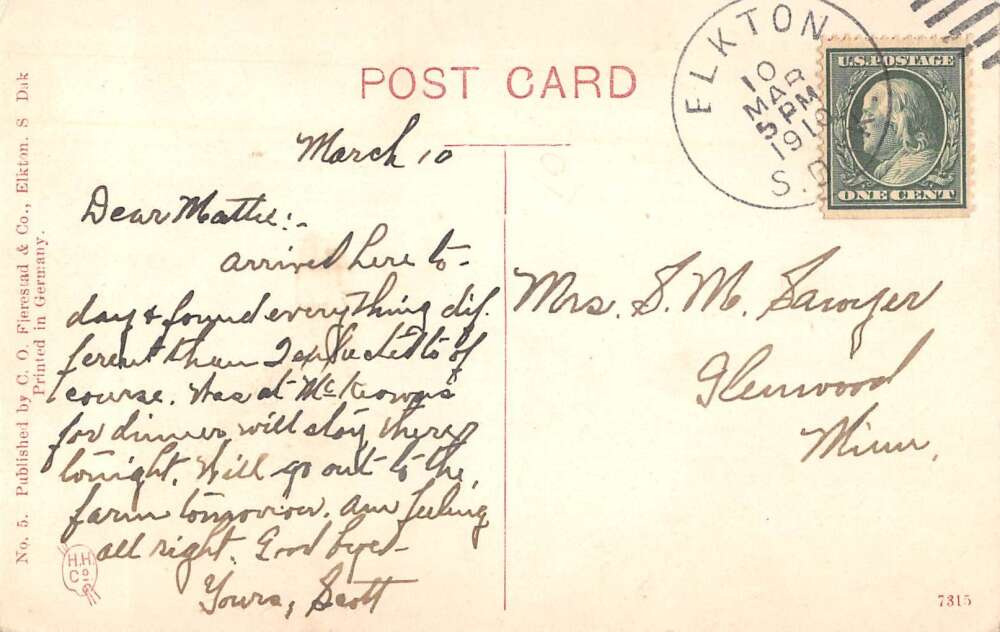 POST CARD
ELKTON
10
MAR
5 PM
1910
S. D.
U.S. POSTAGE
ONE CENT
No. 5. Published by C. O. Fjerestad & Co., Elkton, S Dak
Printed in Germany.
March 10
Dear Mattie:-
arrived here to-
day & found everything dif-
ferent than I expected to of
course. Was at McKeown's
for dinner will stay there
tonight. Will go out to the
farm tomorrow. Am feeling
all right. Good bye-
Yours, Scott
Mrs. S. M. Sawyer
Glenwood
Minn.
H.H.
Co
7315